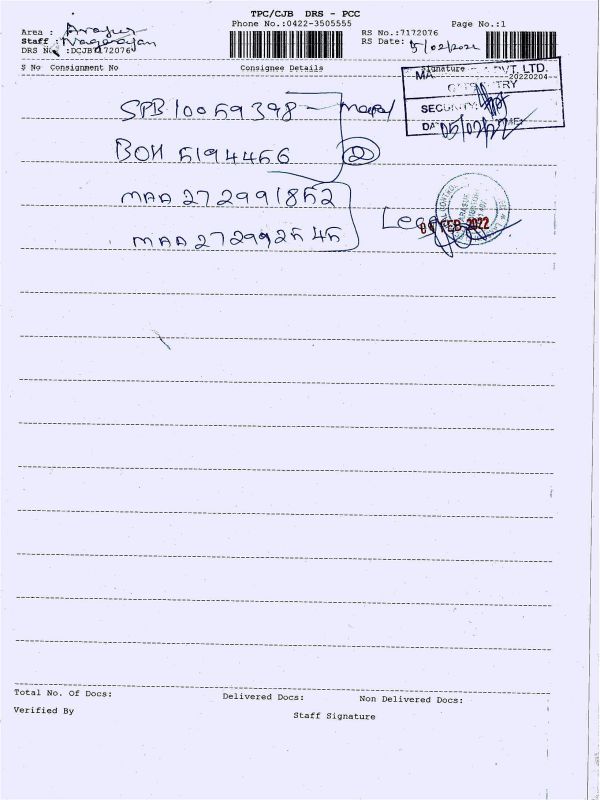 TPC/CJB DRS - PCC
Phone No.:0422-3505555 Page No.:1
Area : Arasur RS No.:7172076
Staff : Nagarajan RS Date: 5/02/2022
DRS No :DCJB7172076
S No Consignment No Consignee Details Signature 20220204
MA PVT. LTD.
SECURITY:
DATE 05/02/22 TIME:
SPB 10059398
BOM 5194456 2
MAA 272991852
MAA 272992545
FEB 2022
Total No. Of Docs: Delivered Docs: Non Delivered Docs:
Verified By Staff Signature